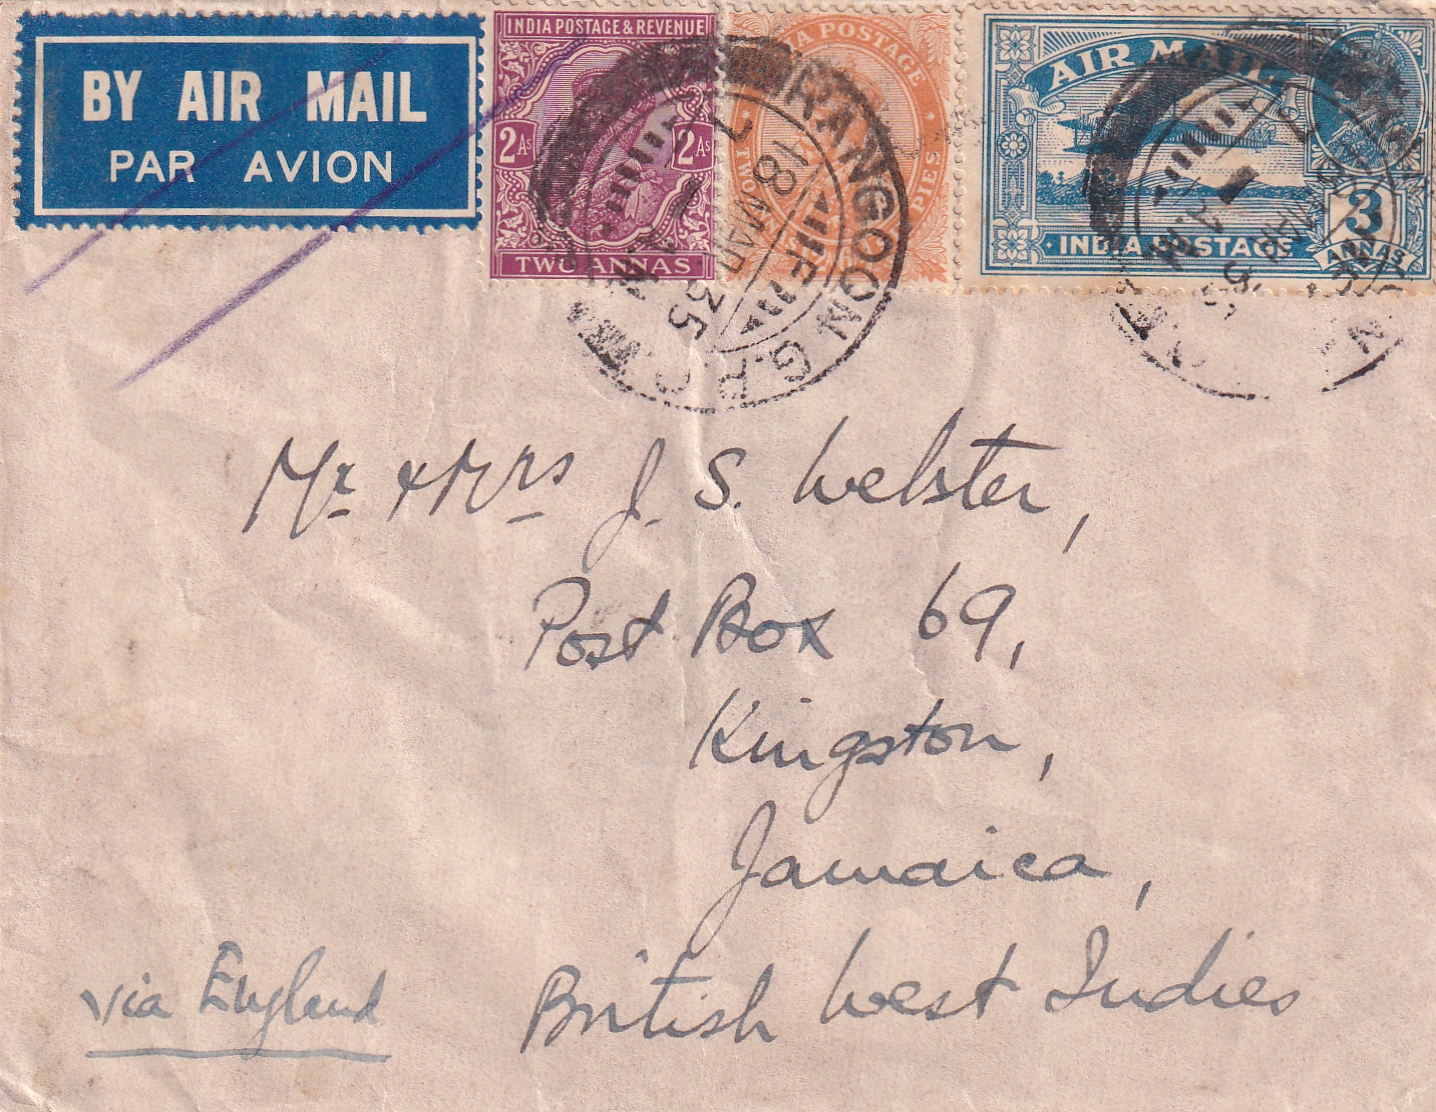 BY AIR MAIL
PAR AVION
INDIA POSTAGE & REVENUE
2As 2As
TWO ANNAS
POSTAGE
TWO
PIES
AIR MAIL
INDIA POSTAGE
3
ANNAS
RANGOON G.P.O.
18 MAR 35
Mr & Mrs J. S. Webster,
Post Box 69,
Kingston,
Jamaica,
British West Indies
via England